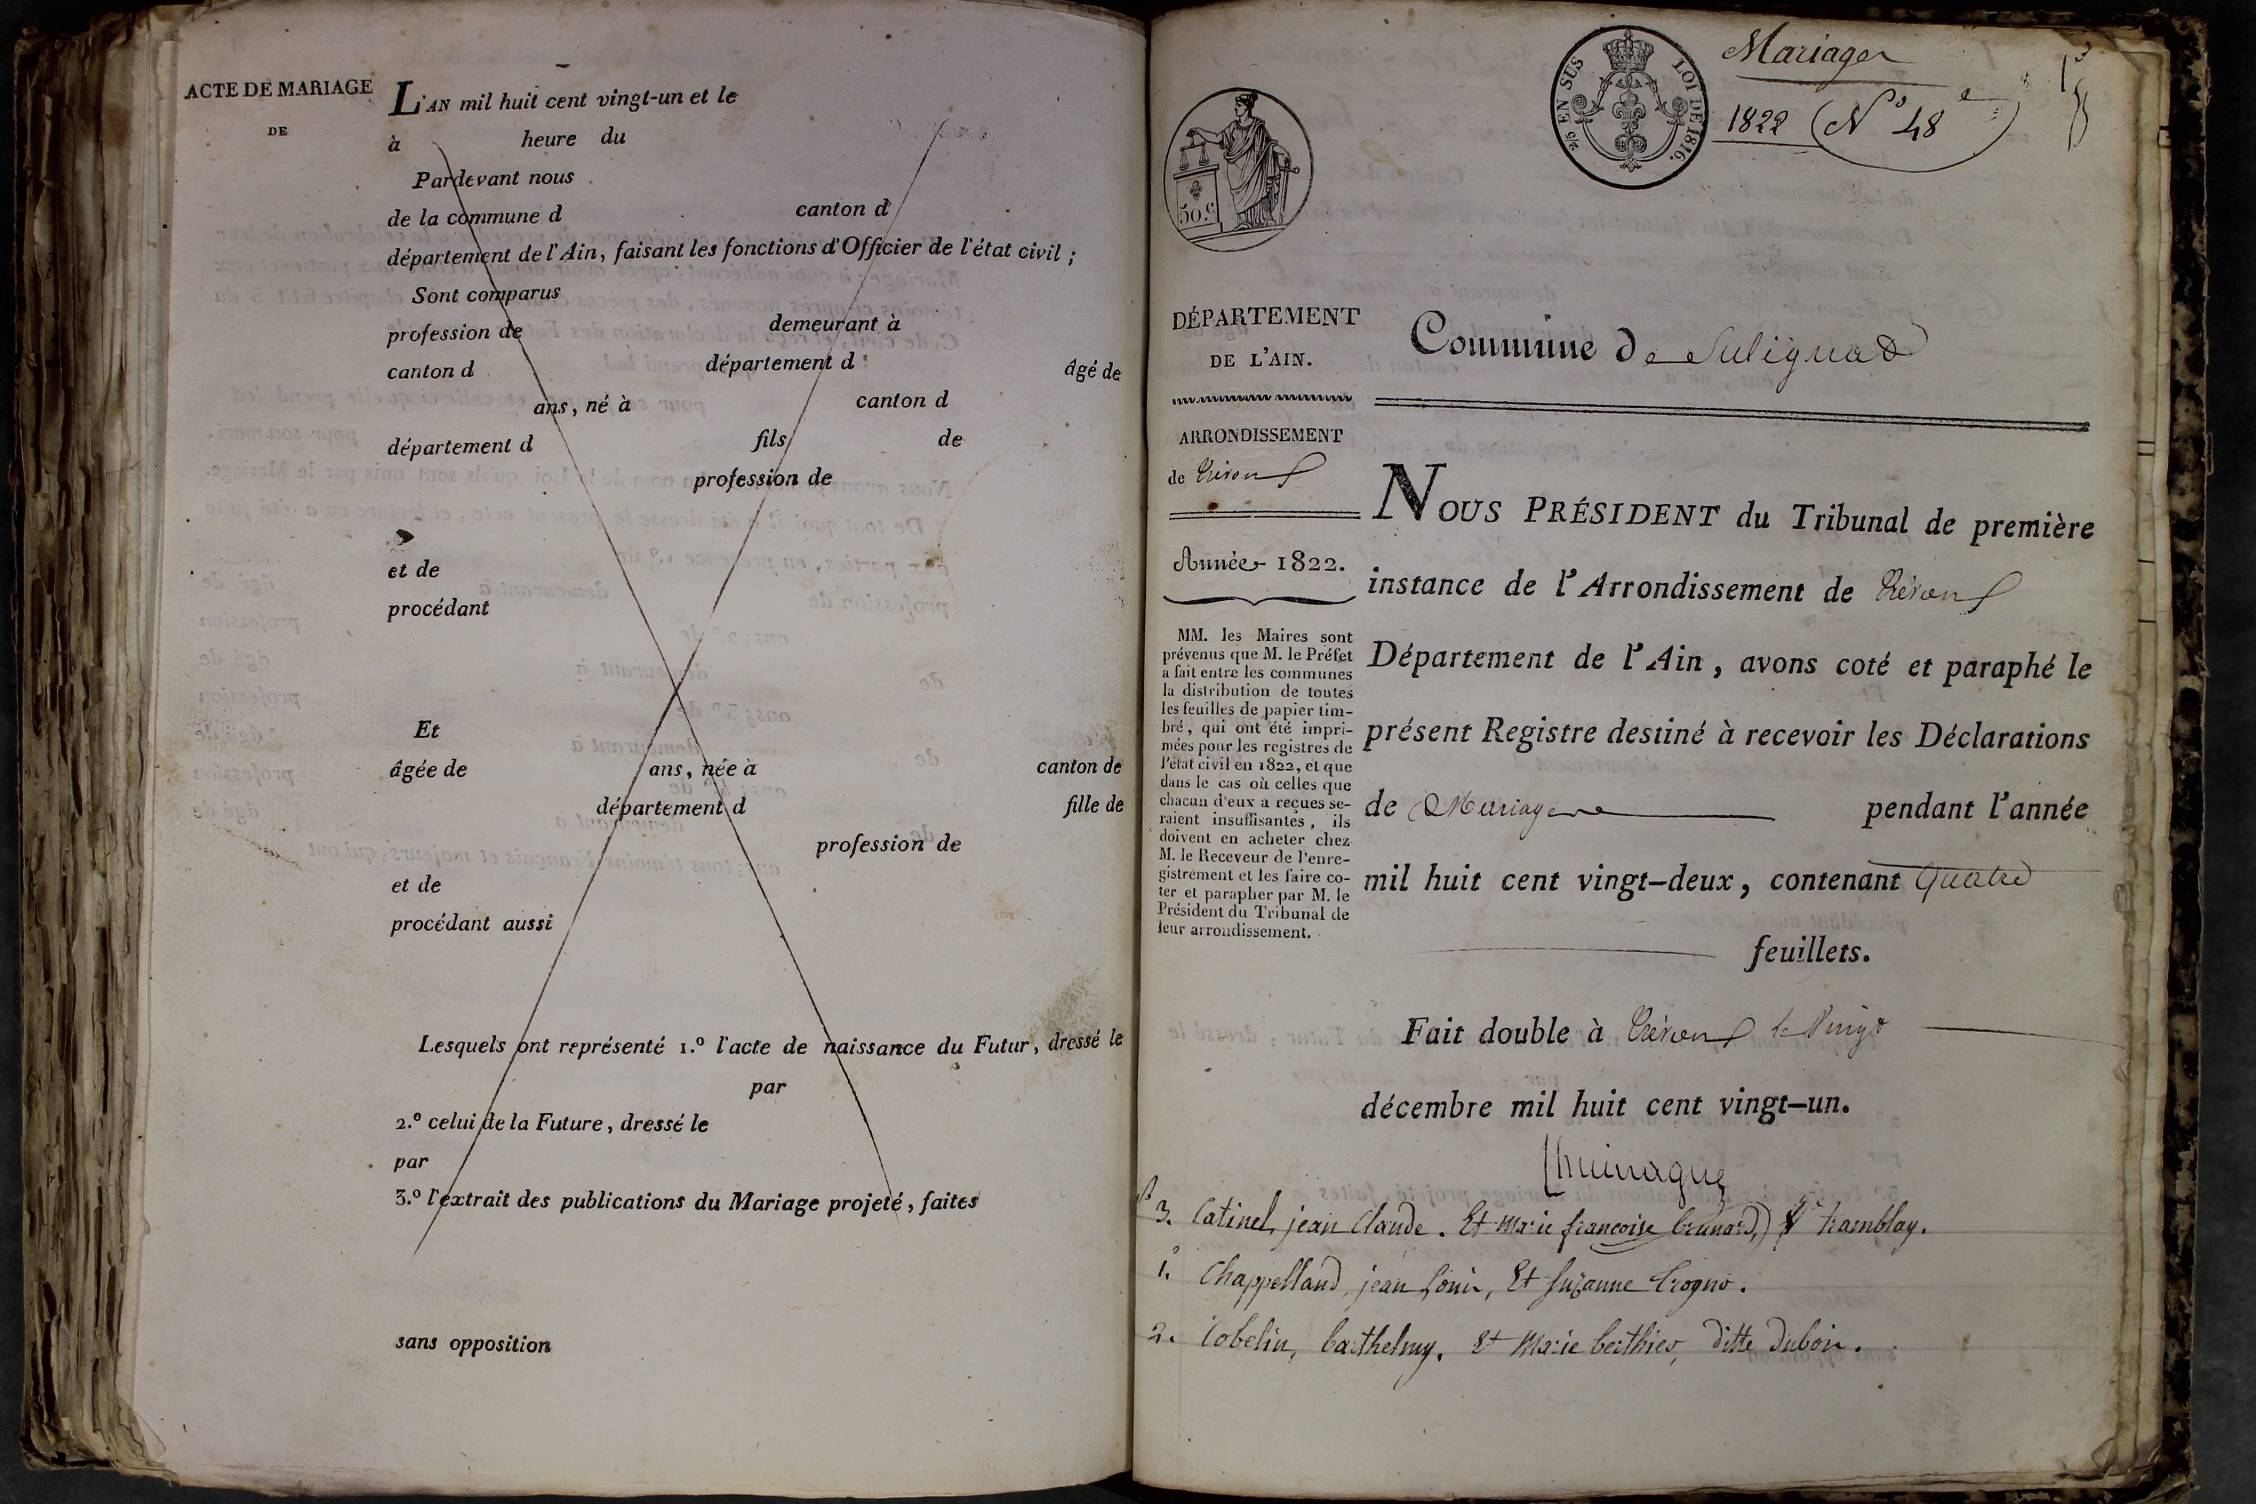 ACTE DE MARIAGE
DE
L'AN mil huit cent vingt-un et le
à heure du
Pardevant nous
de la commune d canton d
département de l'Ain, faisant les fonctions d'Officier de l'état civil ;
Sont comparus
profession de demeurant à
canton d département d âgé de
ans, né à canton d
département d fils de
profession de
et de
procédant
Et
âgée de ans, née à canton de
département d fille de
profession de
et de
procédant aussi
Lesquels ont représenté 1.º l'acte de naissance du Futur, dressé le
par
2.º celui de la Future, dressé le
par
3.º l'extrait des publications du Mariage projeté, faites
sans opposition
Mariages
1822 (Nº 48e)
2/5 EN SUS LOI DE 1816.
50 c
DÉPARTEMENT
DE L'AIN.
ARRONDISSEMENT
de Trévoux
Année 1822.
MM. les Maires sont
prévenus que M. le Préfet
a fait entre les communes
la distribution de toutes
les feuilles de papier tim-
bré, qui ont été impri-
mées pour les registres de
l'état civil en 1822, et que
dans le cas où celles que
chacun d'eux a reçues se-
raient insuffisantes, ils
doivent en acheter chez
M. le Receveur de l'enre-
gistrement et les faire co-
ter et parapher par M. le
Président du Tribunal de
leur arrondissement.
Commune de Sulignat
NOUS PRÉSIDENT du Tribunal de première
instance de l'Arrondissement de Trévoux
Département de l'Ain, avons coté et paraphé le
présent Registre destiné à recevoir les Déclarations
de Mariage pendant l'année
mil huit cent vingt-deux, contenant quatre
feuillets.
Fait double à Trévoux le vingt
décembre mil huit cent vingt-un.
3. Catinel, jean Claude. Et Marie francoise brunard, tramblay.
1. Chappelland, jean Louis, Et Suzanne
2. barthelmy. Et Marie berthier, ditte Dubois.